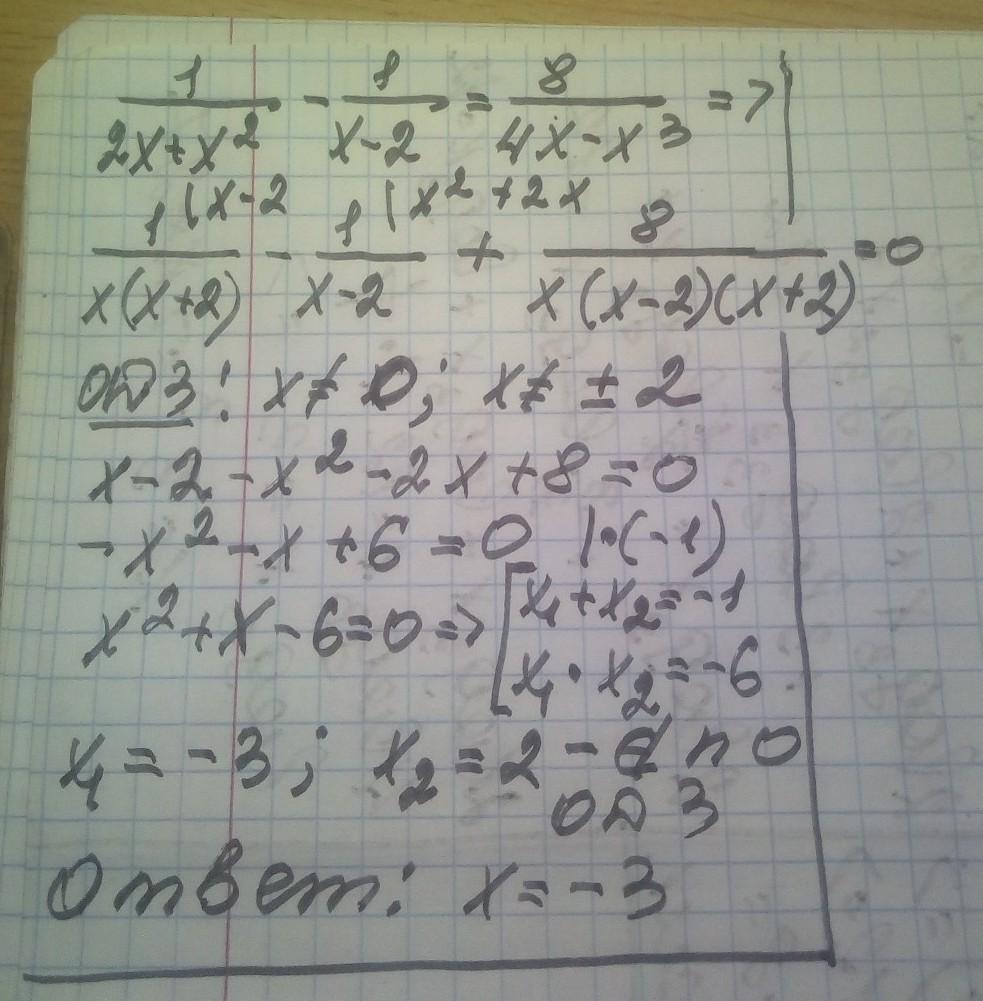 1/(2x+x²) - 1/(x-2) = 8/(4x-x³) =>
1|x-2/(x(x+2)) - 1|x²+2x/(x-2) + 8/(x(x-2)(x+2)) = 0
ОДЗ: x≠0; x≠ ±2
x-2-x²-2x+8=0
-x²-x+6=0 |·(-1)
x²+x-6=0 => [x₁+x₂=-1
x₁·x₂=-6
x₁=-3; x₂=2 - ∉ по
ОДЗ
Ответ: x=-3